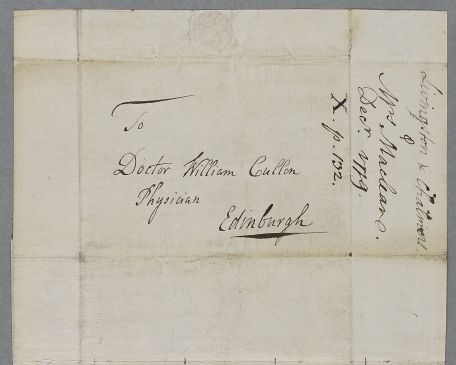 To
Doctor William Cullen
Physician
Edinburgh
Livingston & Chalmers
Mrs Macleane.
Decr. 1779.
X. p. 132.